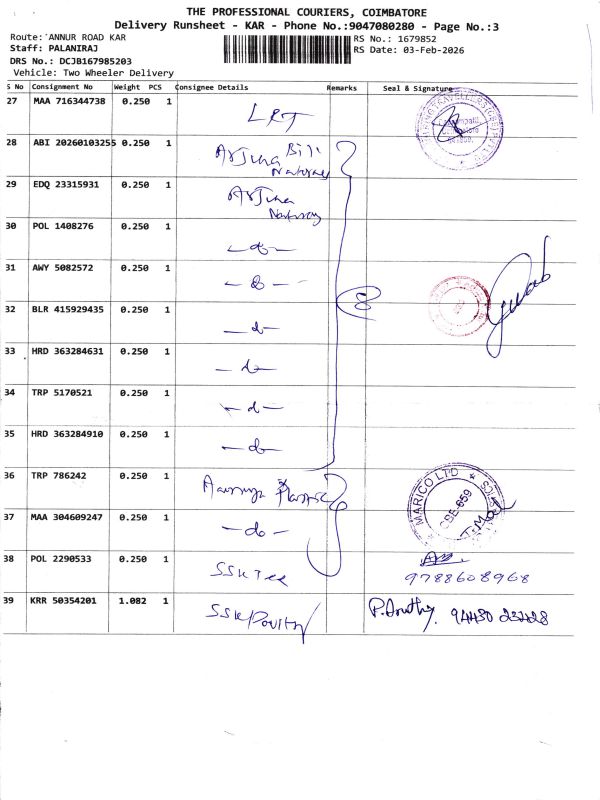 THE PROFESSIONAL COURIERS, COIMBATORE
Delivery Runsheet - KAR - Phone No.:9047080280 - Page No.:3
Route: ANNUR ROAD KAR RS No.: 1679852
Staff: PALANIRAJ RS Date: 03-Feb-2026
DRS No.: DCJB167985203
Vehicle: Two Wheeler Delivery
S No Consignment No Weight PCS Consignee Details Remarks Seal & Signature
27 MAA 716344738 0.250 1 LRT
28 ABI 20260103255 0.250 1 Arjuna
Natural
29 EDQ 23315931 0.250 1 Arjuna
30 POL 1408276 0.250 1 -do-
31 AWY 5082572 0.250 1 -do-
8
32 BLR 415929435 0.250 1 -do-
33 HRD 363284631 0.250 1 -do-
34 TRP 5170521 0.250 1 -do-
35 HRD 363284910 0.250 1 -do-
36 TRP 786242 0.250 1 MARICO LTD
CBE-659
37 MAA 304609247 0.250 1 -do-
38 POL 2290533 0.250 1 SSK
9788608968
39 KRR 50354201 1.082 1 SSK Poultry